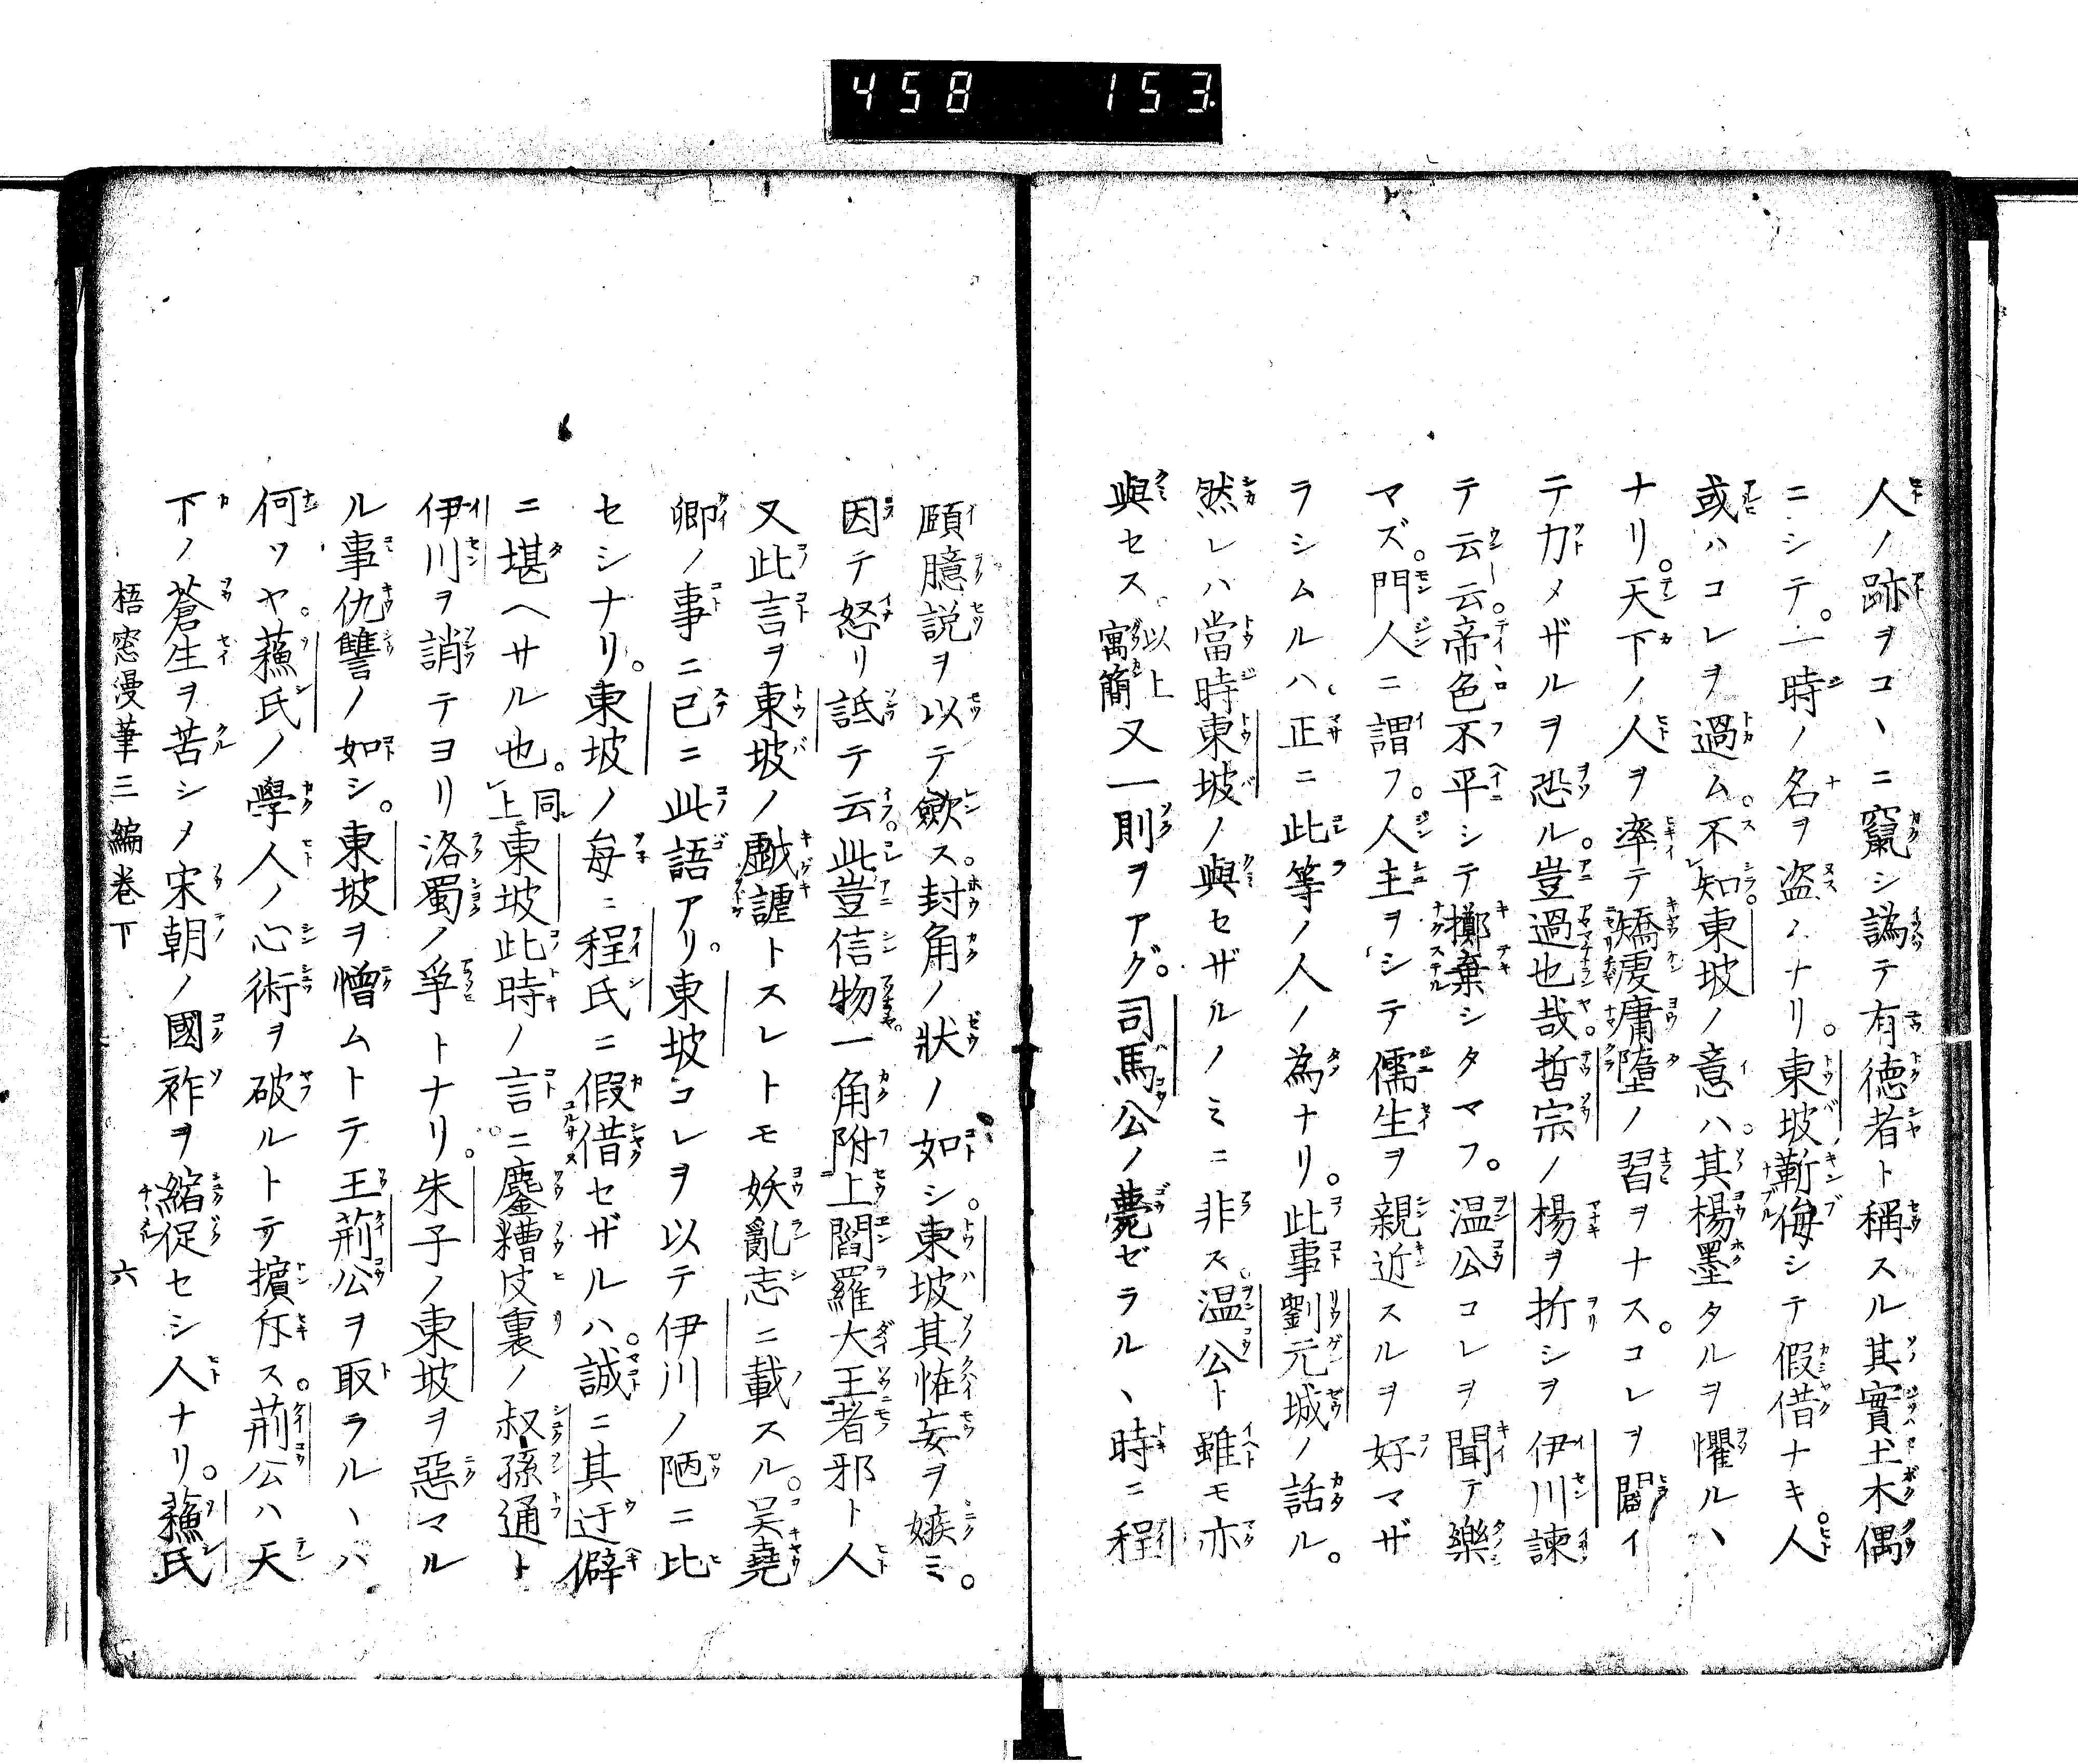 458 153
人ノ跡ヲコヽニ竄シ譌テ有徳者ト稱スル其實土木偶
ニシテ。一時ノ名ヲ盗ノナリ。東坡ノ靳侮シテ假借ナキ人。
或ハコレヲ過ム。不知東坡ノ意ハ。其楊墨タルヲ懼ルヽ
ナリ。天下ノ人ヲ率テ矯虔庸墮ノ習ヲナス。コレヲ闢イ
テ力メザルヲ恐ル。豈過也哉。哲宗ノ楊ヲ折シヲ伊川諫
テ云云。帝色不平シテ擲棄シタマフ。温公コレヲ聞テ樂
マズ。門人ニ謂フ。人主ヲシテ儒生ヲ親近スルヲ好マザ
ラシムルハ正ニ此等ノ人ノ為ナリ。此事劉元城ノ話ル。
然レハ當時東坡ノ與セザルノミニ非ス。温公ト雖モ亦
與セス。以上寓簡又一則ヲアグ。司馬公ノ薨ゼラルヽ時ニ程
頤臆説ヲ以テ歛ス。封角ノ状ノ如シ。東坡其怪妄ヲ嫉ミ。
因テ怒リ詆テ云。此豈信物一角附上閻羅大王者邪ト人
又此言ヲ東坡ノ戲謔トスレトモ妖亂志ニ載スル。呉堯
卿ノ事ニ已ニ此語アリ。東坡コレヲ以テ伊川ノ陋ニ比
セシナリ。東坡ノ毎ニ程氏ニ假借セザルハ。誠ニ其迂僻
ニ堪ヘサル也。同上東坡此時ノ言ニ鏖糟皮裏ノ叔孫通ト
伊川ヲ誚テヨリ洛蜀ノ爭トナリ。朱子ノ東坡ヲ惡マル
ル事仇讐ノ如シ。東坡ヲ憎ムトテ王荊公ヲ取ラルヽハ
何ソヤ。蘓氏ノ學人ノ心術ヲ破ルトテ擯斥ス。荊公ハ天
下ノ蒼生ヲ苦シメ宋朝ノ國祚ヲ縮促セシ人ナリ。蘓氏
梧窓漫筆三編巻下 六